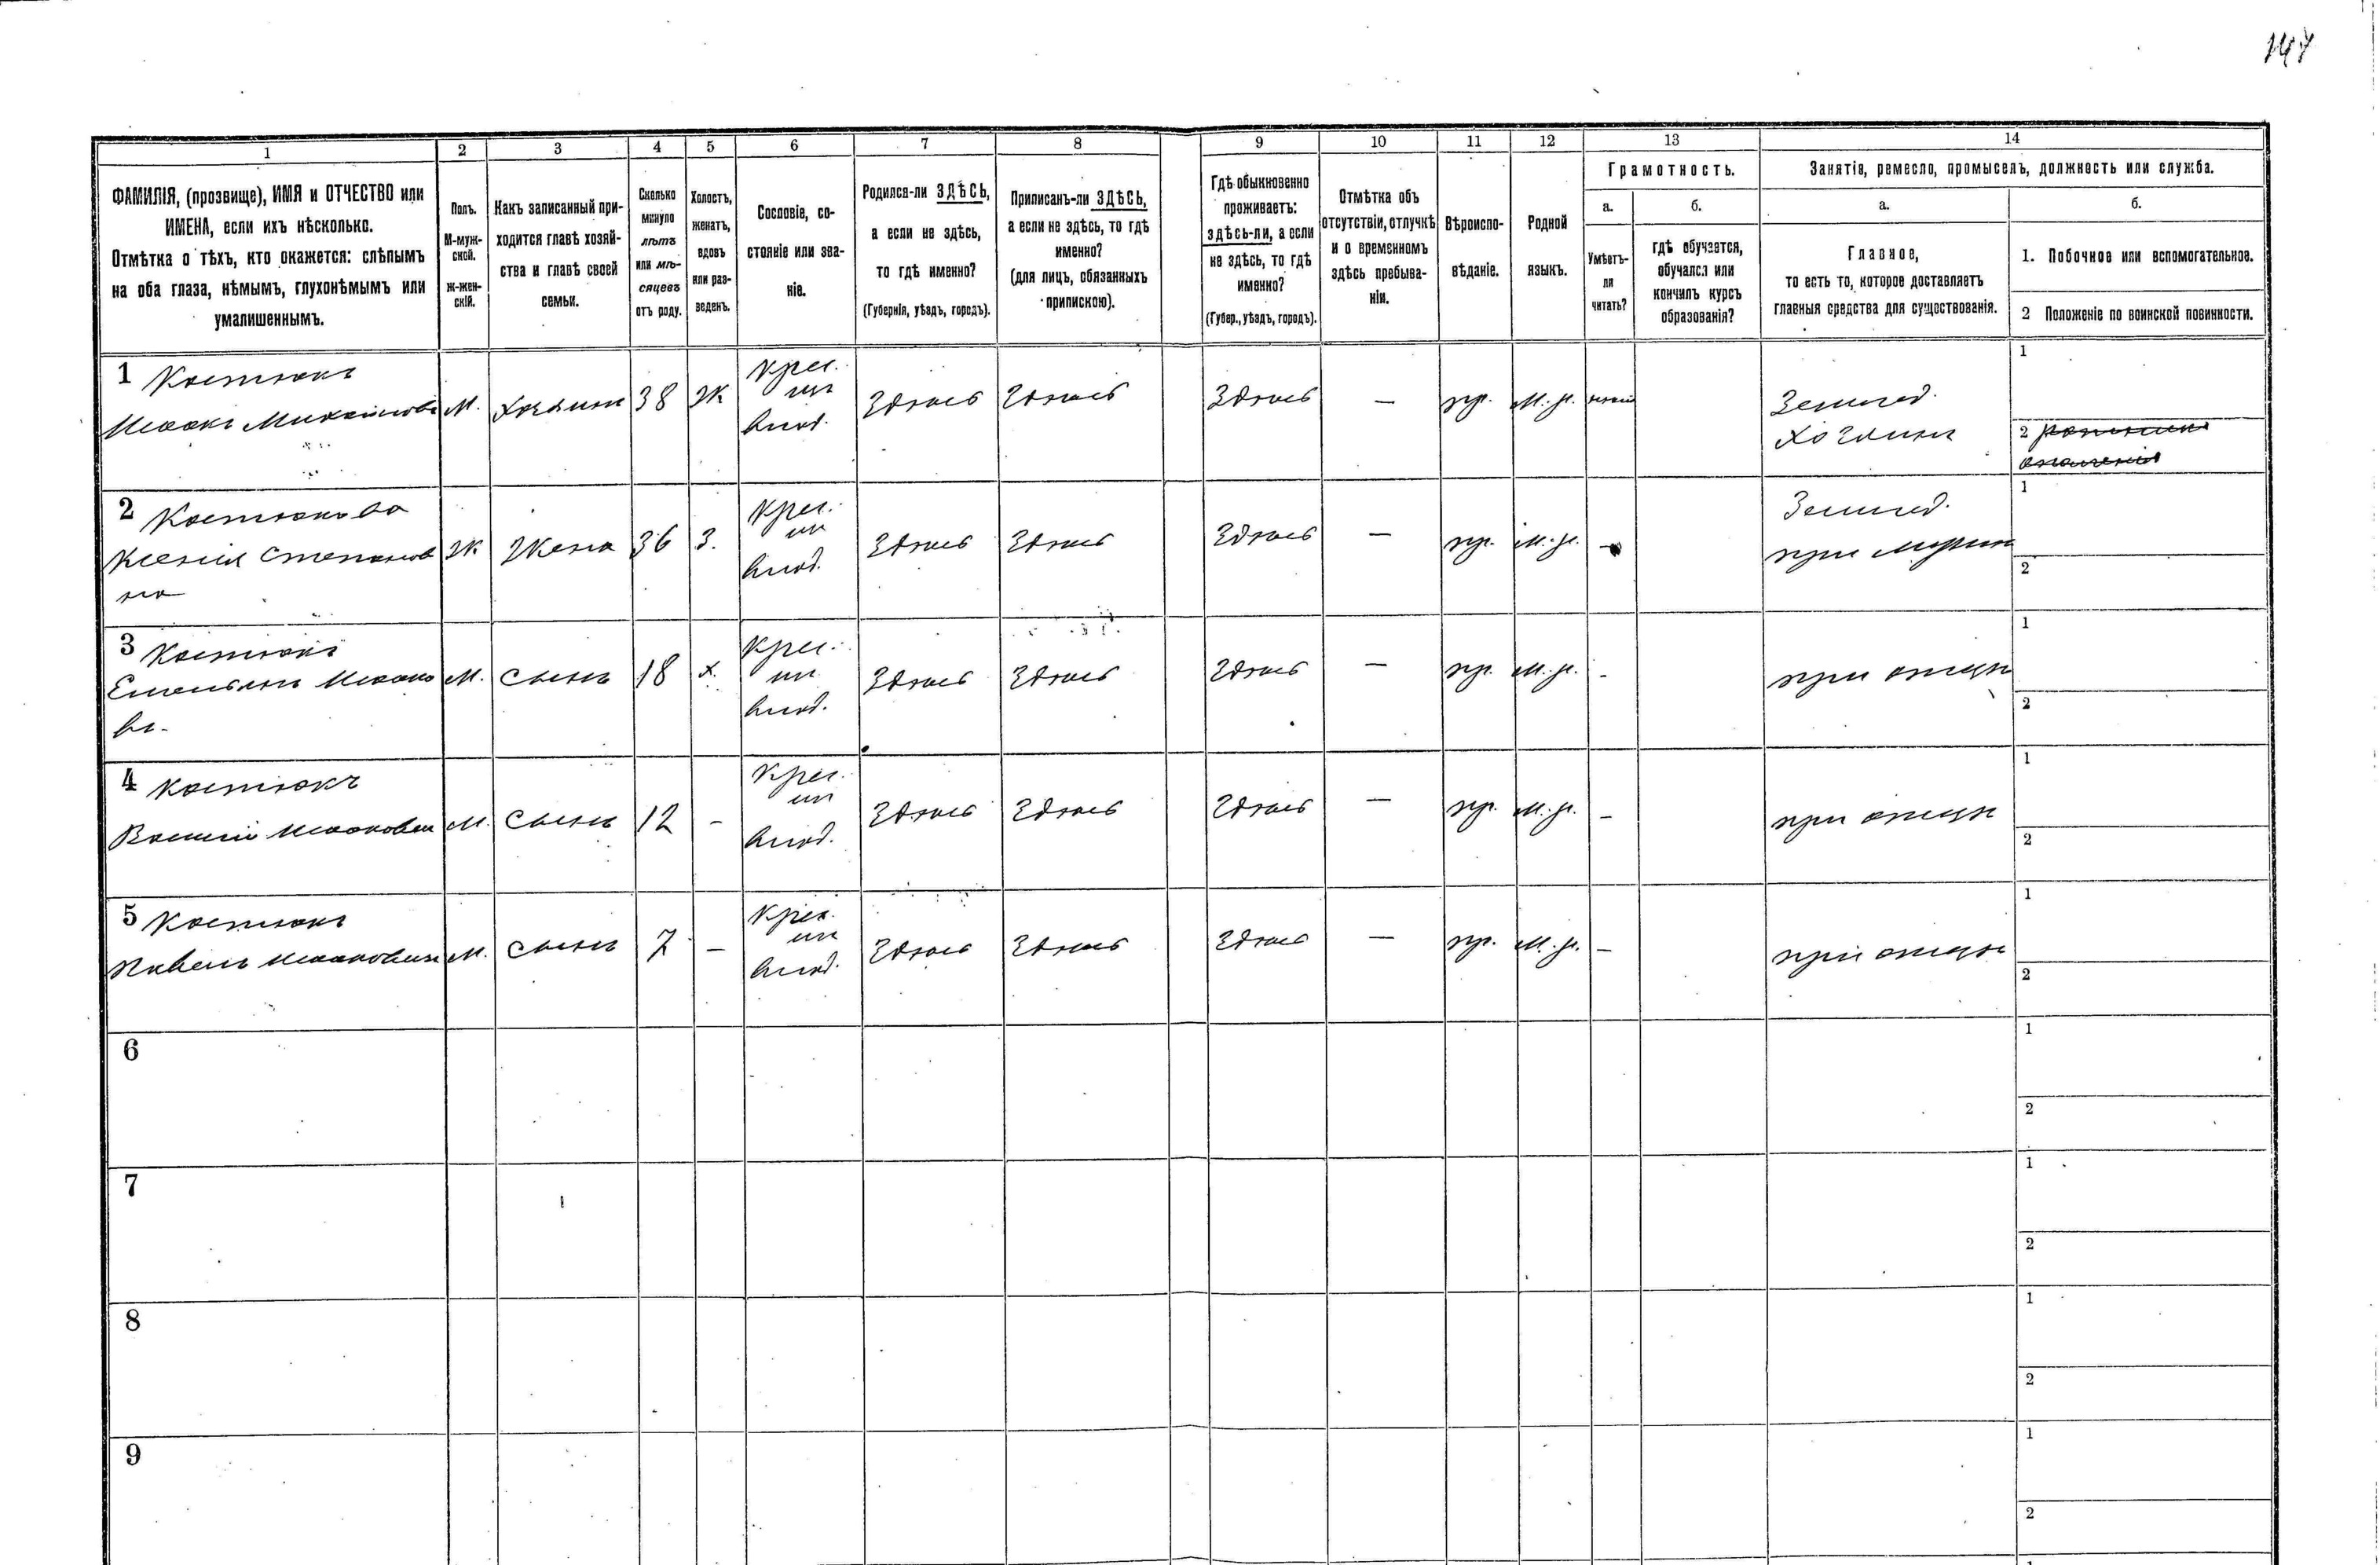 147
1 2 3 4 5 6 7 8 9 10 11 12 13 14
ФАМИЛІЯ, (прозвище), ИМЯ и ОТЧЕСТВО или
ИМЕНА, если ихъ нѣсколько.
Отмѣтка о тѣхъ, кто окажется: слѣпымъ
на оба глаза, нѣмымъ, глухонѣмымъ или
умалишеннымъ.
Полъ.
М-муж-
ской.
Ж-жен-
скій.
Какъ записанный при-
ходится главѣ хозяй-
ства и главѣ своей
семьи.
Сколько
минуло
лѣтъ
или мѣ-
сяцевъ
отъ роду.
Холостъ,
женатъ,
вдовъ
или раз-
веденъ.
Сословіе, со-
стояніе или зва-
ніе.
Родился-ли ЗДѢСЬ,
а если не здѣсь,
то гдѣ именно?
(Губернія, уѣздъ, городъ).
Приписанъ-ли ЗДѢСЬ,
а если не здѣсь, то гдѣ
именно?
(для лицъ, обязанныхъ
припискою).
Гдѣ обыкновенно
проживаетъ:
здѣсь-ли, а если
не здѣсь, то гдѣ
именно?
(Губер., уѣздъ, городъ).
Отмѣтка объ
отсутствіи, отлучкѣ
и о временномъ
здѣсь пребыва-
ніи.
Вѣроиспо-
вѣданіе.
Родной
языкъ.
Грамотность.
а.
Умѣетъ-
ли
читать?
б.
гдѣ обучается,
обучался или
кончилъ курсъ
образованія?
Занятія, ремесло, промыселъ, должность или служба.
а.
Главное,
то есть то, которое доставляетъ
главныя средства для существованія.
б.
1. Побочное или вспомогательное.
2 Положеніе по воинской повинности.
1 Костюкъ
Исаакъ Михайловъ М. Хозяинъ 38 Ж Крес. из влад. Здѣсь Здѣсь Здѣсь — пр. м.р. Землед. 1
хозяинъ 2
2 Костюкова
Ксенія Степанов Ж Жена 36 З. Крес. из влад. Здѣсь Здѣсь Здѣсь — пр. м.р. — Землед. 1
на при мужѣ 2
3 Костюкъ
Емельянъ Исаако М. Сынъ 18 х. Крес. из влад. Здѣсь Здѣсь Здѣсь — пр. м.р. - при отцѣ 1
въ- 2
4 Костюкъ
Василій Исааковъ М. Сынъ 12 - Крес. из влад. Здѣсь Здѣсь Здѣсь — пр. м.р. — при отцѣ 1
2
5 Костюкъ
Павелъ Исааковъ М. Сынъ 7 — Крес. из влад. Здѣсь Здѣсь Здѣсь — пр. м.р. — при отцѣ 1
2
6 1
2
7 1
2
8 1
2
9 1
2